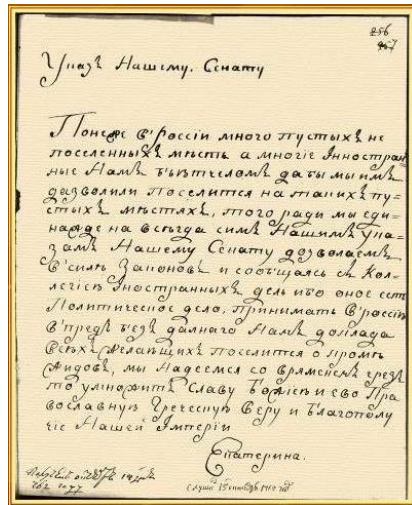 256
257
Указъ Нашему. Сенату
Понеже в'Россiи много пустыхъ не
поселенныхъ мѣстъ а многiе Инностран=
ные Намъ бьютъ челомъ дабы мы имъ
дазволили поселится на такихъ пу=
стыхъ мѣстяхъ, того ради мы еди=
нажде на всегда симъ Нашимъ Ука=
замъ Нашему Сенату дозволаемъ
в'силъ Законовъ и сообщаясь съ Кол=
легiею Иностранныхъ делъ ибо оное есть
Политическое дело, принимать в'Россiю
в'предъ безъ далнаго Намъ доклада
всехъ желающихъ поселится о кромѣ
Жидовъ, мы Надеемся со врѧменемъ чрезъ
то умножить Славу Божiею и ево Пра
вославную Греческую Веру и благополу
чiе Нашей Имперiи
Екатерина.